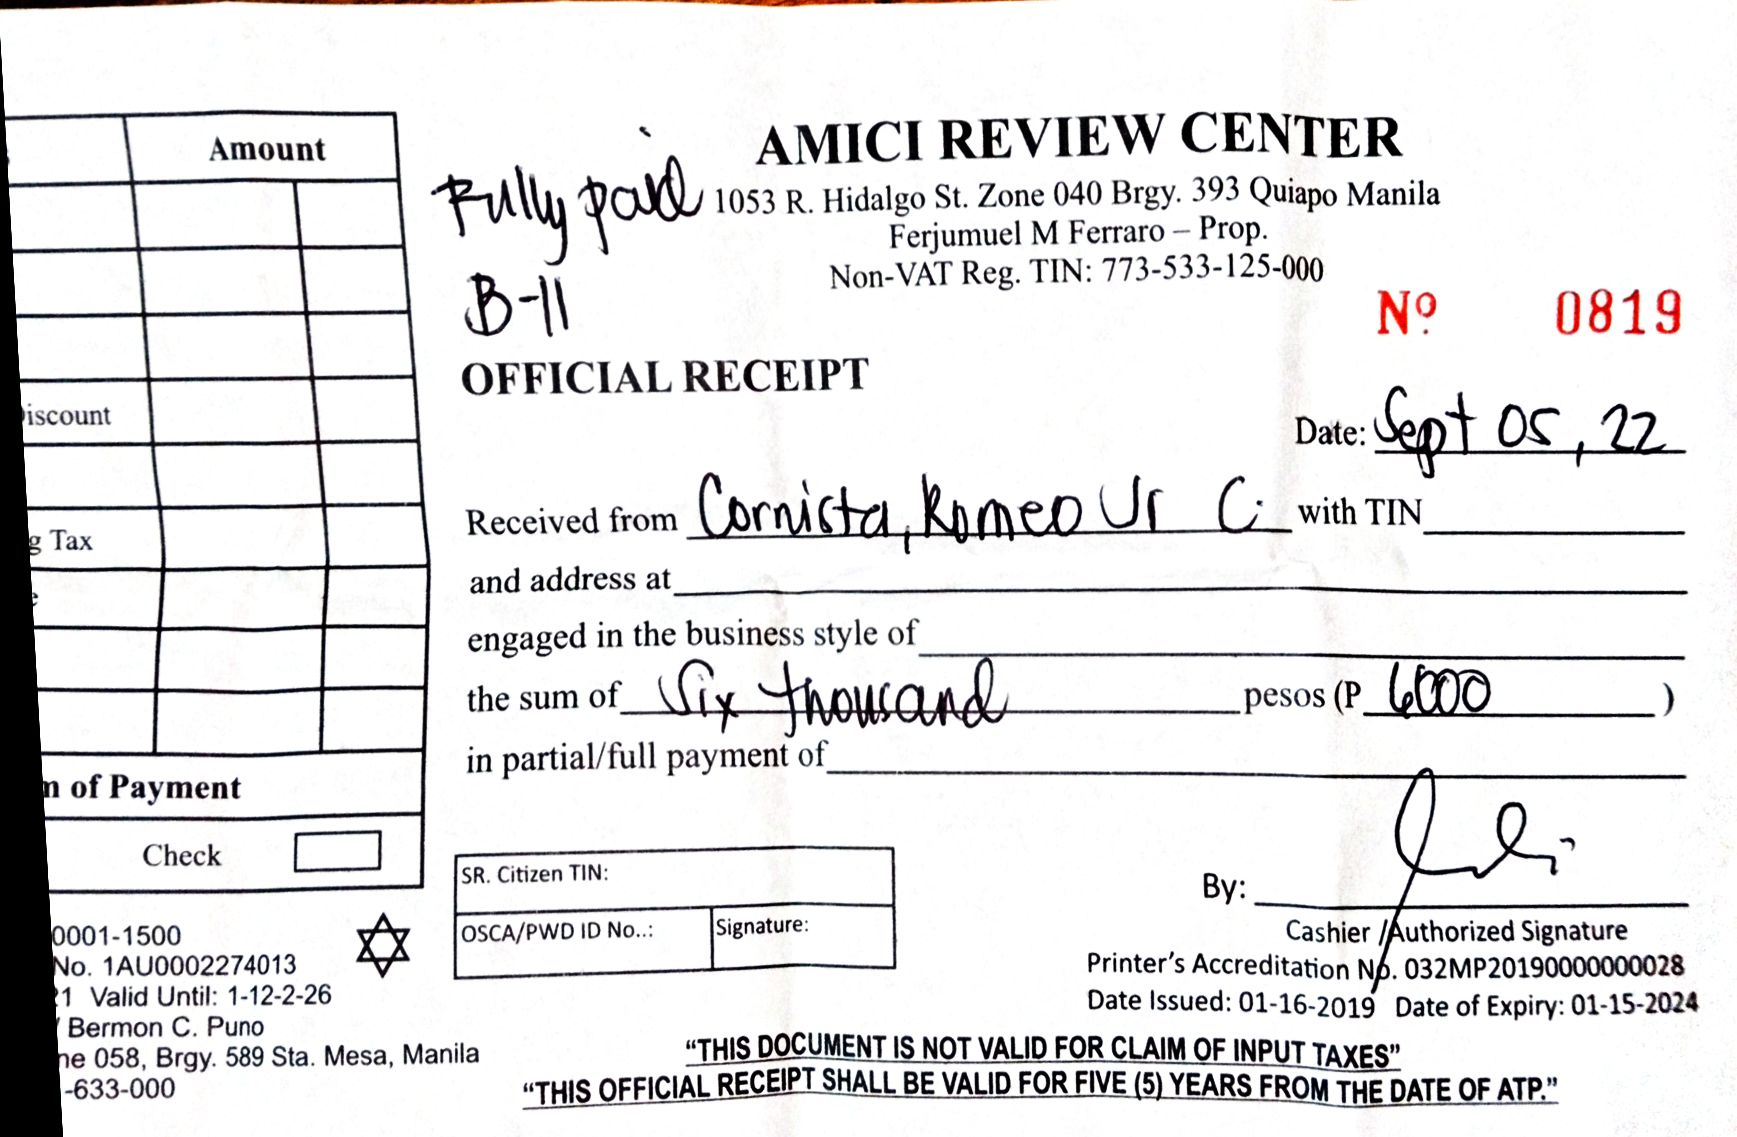 Amount
iscount
g Tax
e
n of Payment
Check
0001-1500
No. 1AU0002274013
21 Valid Until: 1-12-2-26
Bermon C. Puno
ne 058, Brgy. 589 Sta. Mesa, Manila
-633-000
Fully paid
B-11
AMICI REVIEW CENTER
1053 R. Hidalgo St. Zone 040 Brgy. 393 Quiapo Manila
Ferjumuel M Ferraro – Prop.
Non-VAT Reg. TIN: 773-533-125-000
Nº 0819
OFFICIAL RECEIPT
Date: Sept 05, 22
Received from Cornista, Romeo Jr C. with TIN
and address at
engaged in the business style of
the sum of Six thousand pesos (P 6000 )
in partial/full payment of
SR. Citizen TIN:
OSCA/PWD ID No..: Signature:
By:
Cashier /Authorized Signature
Printer's Accreditation No. 032MP20190000000028
Date Issued: 01-16-2019 Date of Expiry: 01-15-2024
“THIS DOCUMENT IS NOT VALID FOR CLAIM OF INPUT TAXES”
“THIS OFFICIAL RECEIPT SHALL BE VALID FOR FIVE (5) YEARS FROM THE DATE OF ATP.”